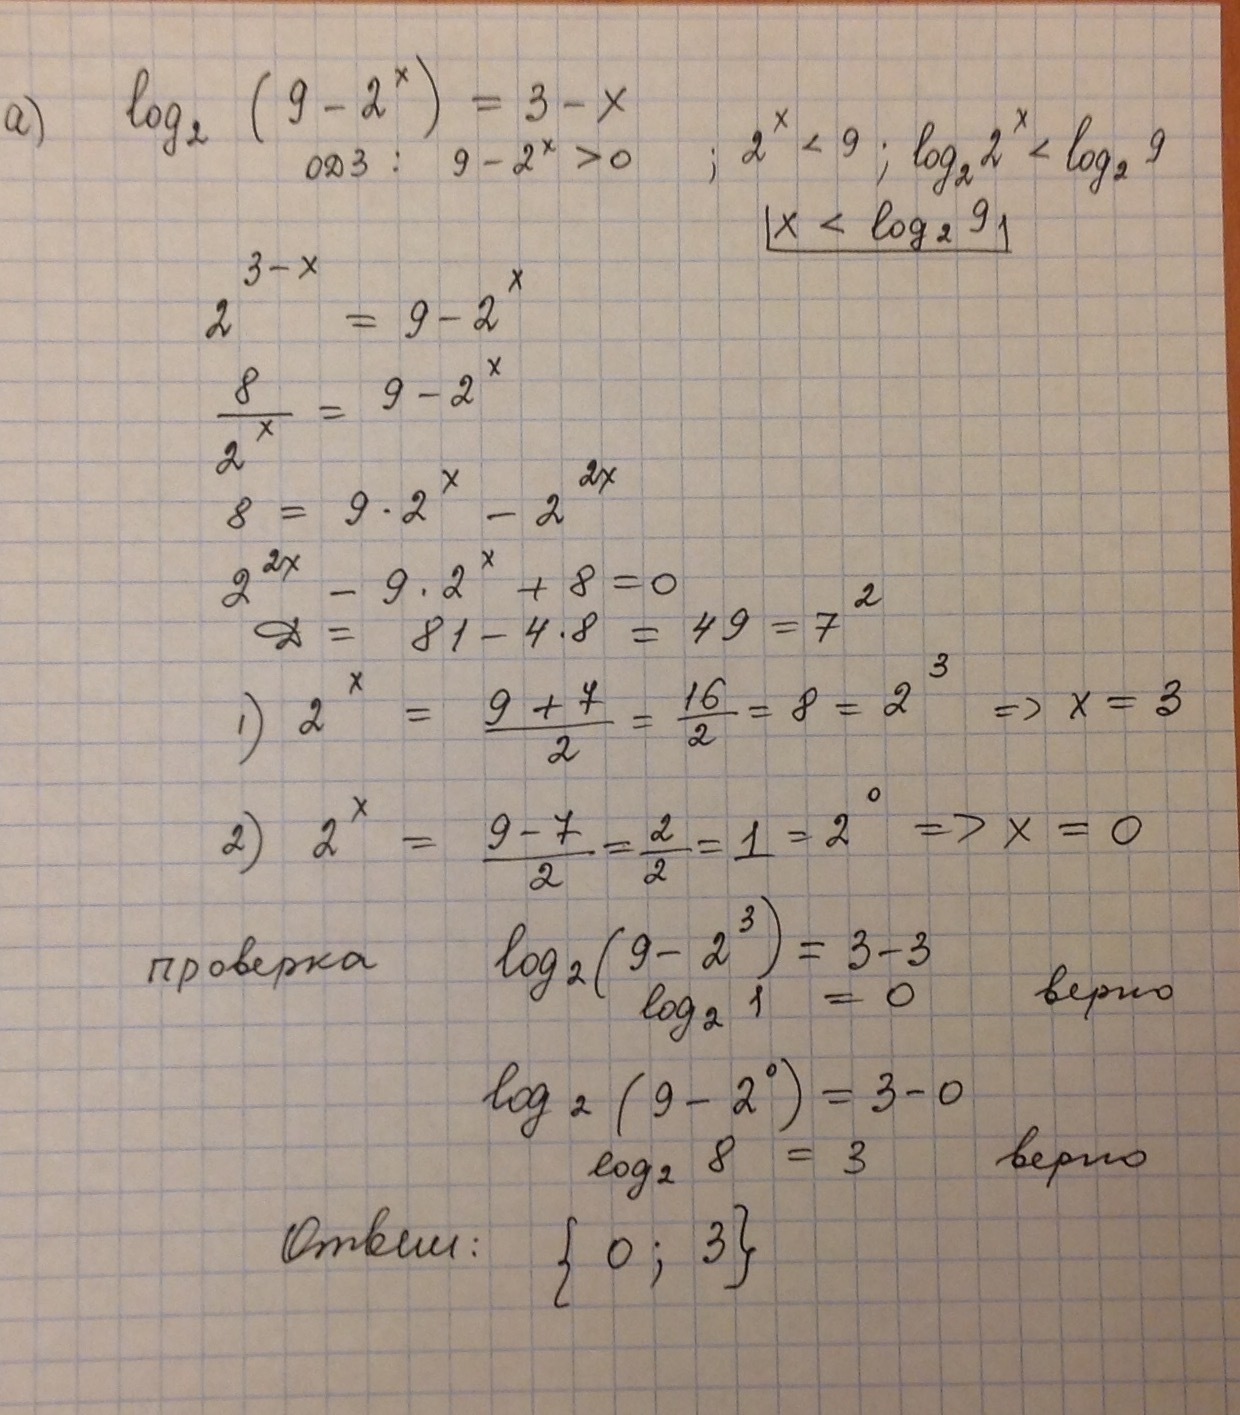 а) log₂ (9 - 2ˣ) = 3 - x
ОДЗ: 9 - 2ˣ > 0 ; 2ˣ < 9 ; log₂ 2ˣ < log₂ 9
x < log₂ 9
2³⁻ˣ = 9 - 2ˣ
8/2ˣ = 9 - 2ˣ
8 = 9 · 2ˣ - 2²ˣ
2²ˣ - 9 · 2ˣ + 8 = 0
D = 81 - 4 · 8 = 49 = 7²
1) 2ˣ = (9 + 7)/2 = 16/2 = 8 = 2³ => x = 3
2) 2ˣ = (9 - 7)/2 = 2/2 = 1 = 2⁰ => x = 0
проверка log₂ (9 - 2³) = 3 - 3
log₂ 1 = 0 верно
log₂ (9 - 2⁰) = 3 - 0
log₂ 8 = 3 верно
Ответ: {0; 3}